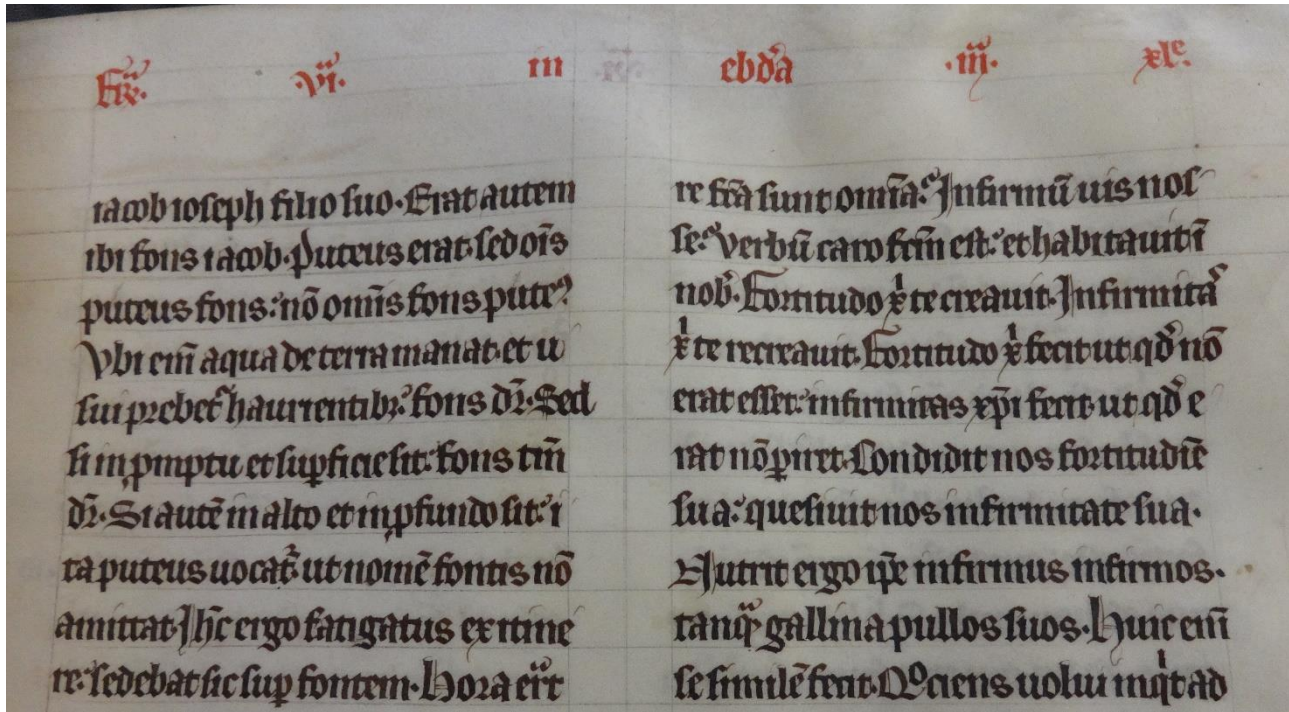 Fr̃e. .vi. in ebd̃a .iii. xl͛e.
iacob ioseph filio suo. Erat autem
ibi fons iacob. Puteus erat. sed oĩs
puteus fons. nõ omĩs fons puteꝰ
Vbi em̃ aqua de terra manat. et u
sui prebet᷑ haurientibꝫ. fons dr̃. Sed
si in ꝓmptu et suꝑficie sit. fons tm̃
dr̃. Si autẽ in alto et in ꝓfundo sit. i
ta puteus uocat᷑. ut nomẽ fontis nõ
amittat. Ihc̃ ergo fatigatus ex itine
re. sedebat sic suꝑ fontem. Hora erat
re fc̃a sunt omĩa. Infirmũ uis nos
se. Verbũ caro fc̃m est. et habitauit ĩ
nob̾. Fortitudo xͥ te creauit. Infirmita᷒
xͥ te recreauit. Fortitudo xͥ fecit ut qd̾ nõ
erat esset. infirmitas xp̃i fecit ut qd̾ e
rat nõ ꝑiret. Condidit nos fortitudĩe
sua. quesiuit nos infirmitate sua.
Nutrit ergo ip̃e infirmus infirmos.
tanqᷓ gallina pullos suos. Huic em̃
se similẽ fecit. Qͦciens uolui inqͥt ad